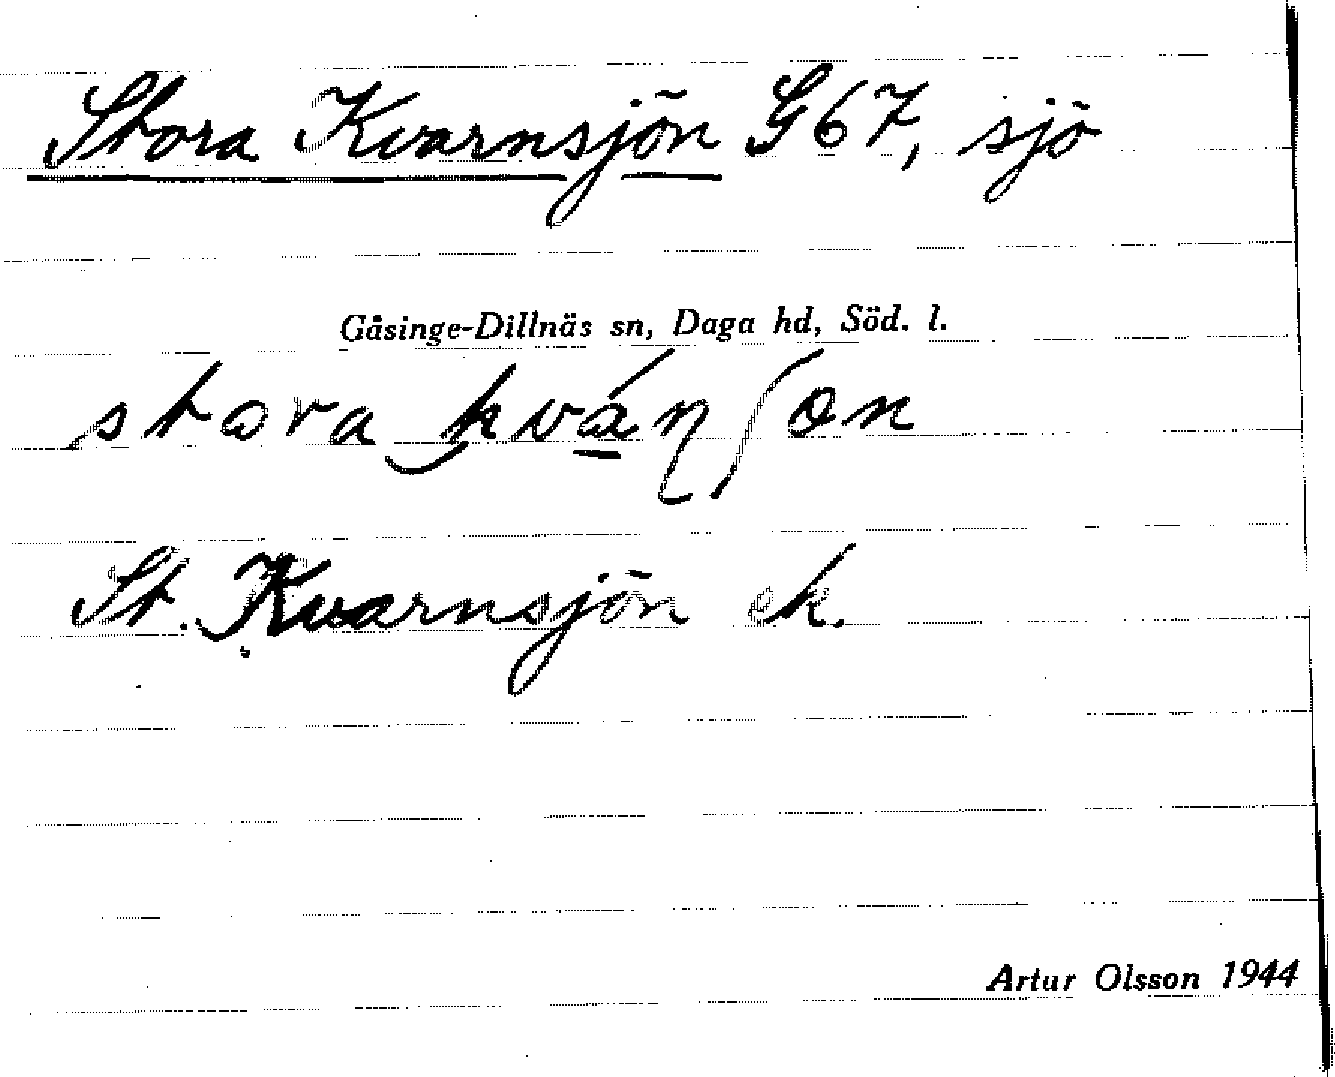 Stora Kvarnsjön G67, sjö
Gåsinge-Dillnäs sn, Daga hd, Söd. l.
stora‿kvá̱ɳʃon
St. Kvarnsjön ek.
Artur Olsson 1944